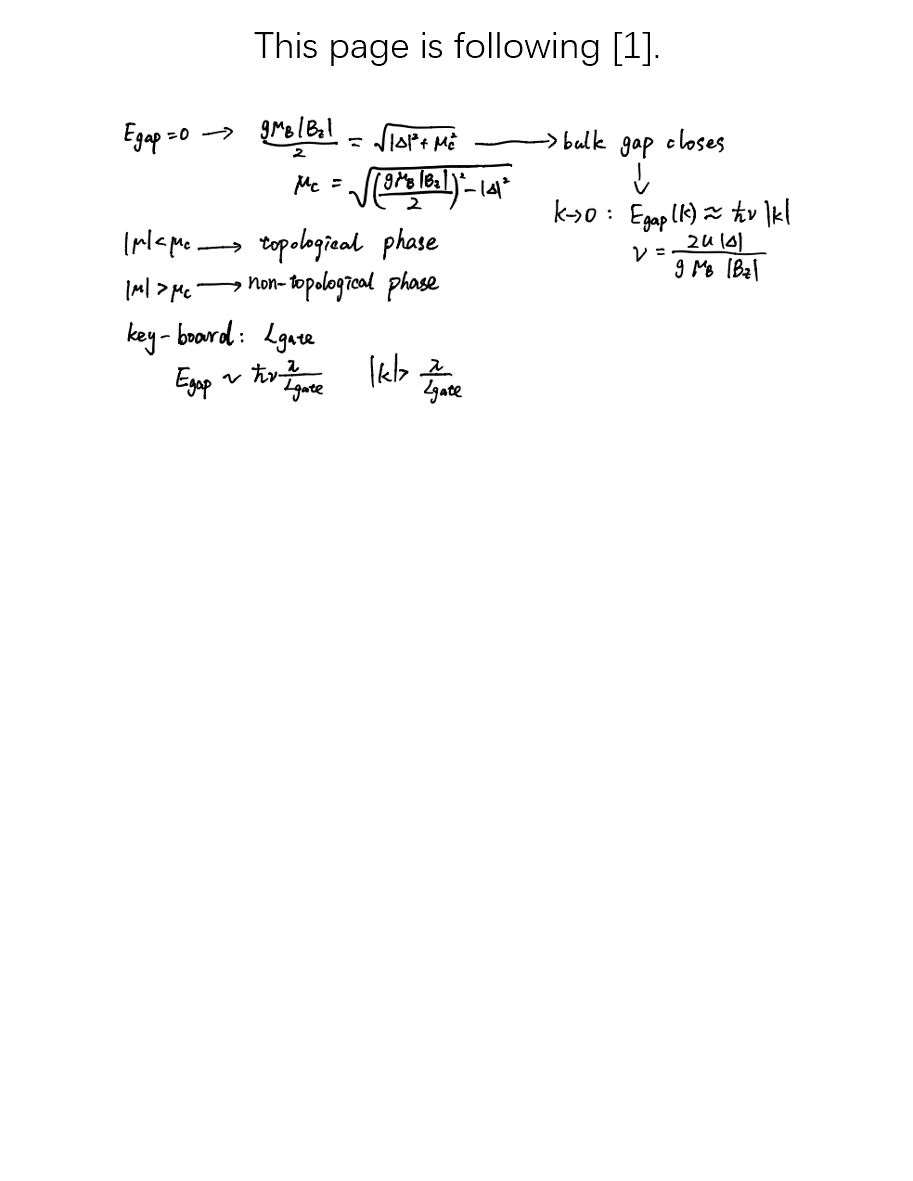 This page is following [1].
E_gap = 0 → gμ_B|B_z|/2 = √(|Δ|² + μ_c²) → bulk gap closes
μ_c = √((gμ_B|B_z|/2)² − |Δ|²)
↓
k→0 : E_gap(k) ≈ ħv|k|
v = 2u|Δ| / gμ_B|B_z|
|μ| < μ_c → topological phase
|μ| > μ_c → non-topological phase
key-board: L_gate
E_gap ~ ħv λ/L_gate |k| > λ/L_gate